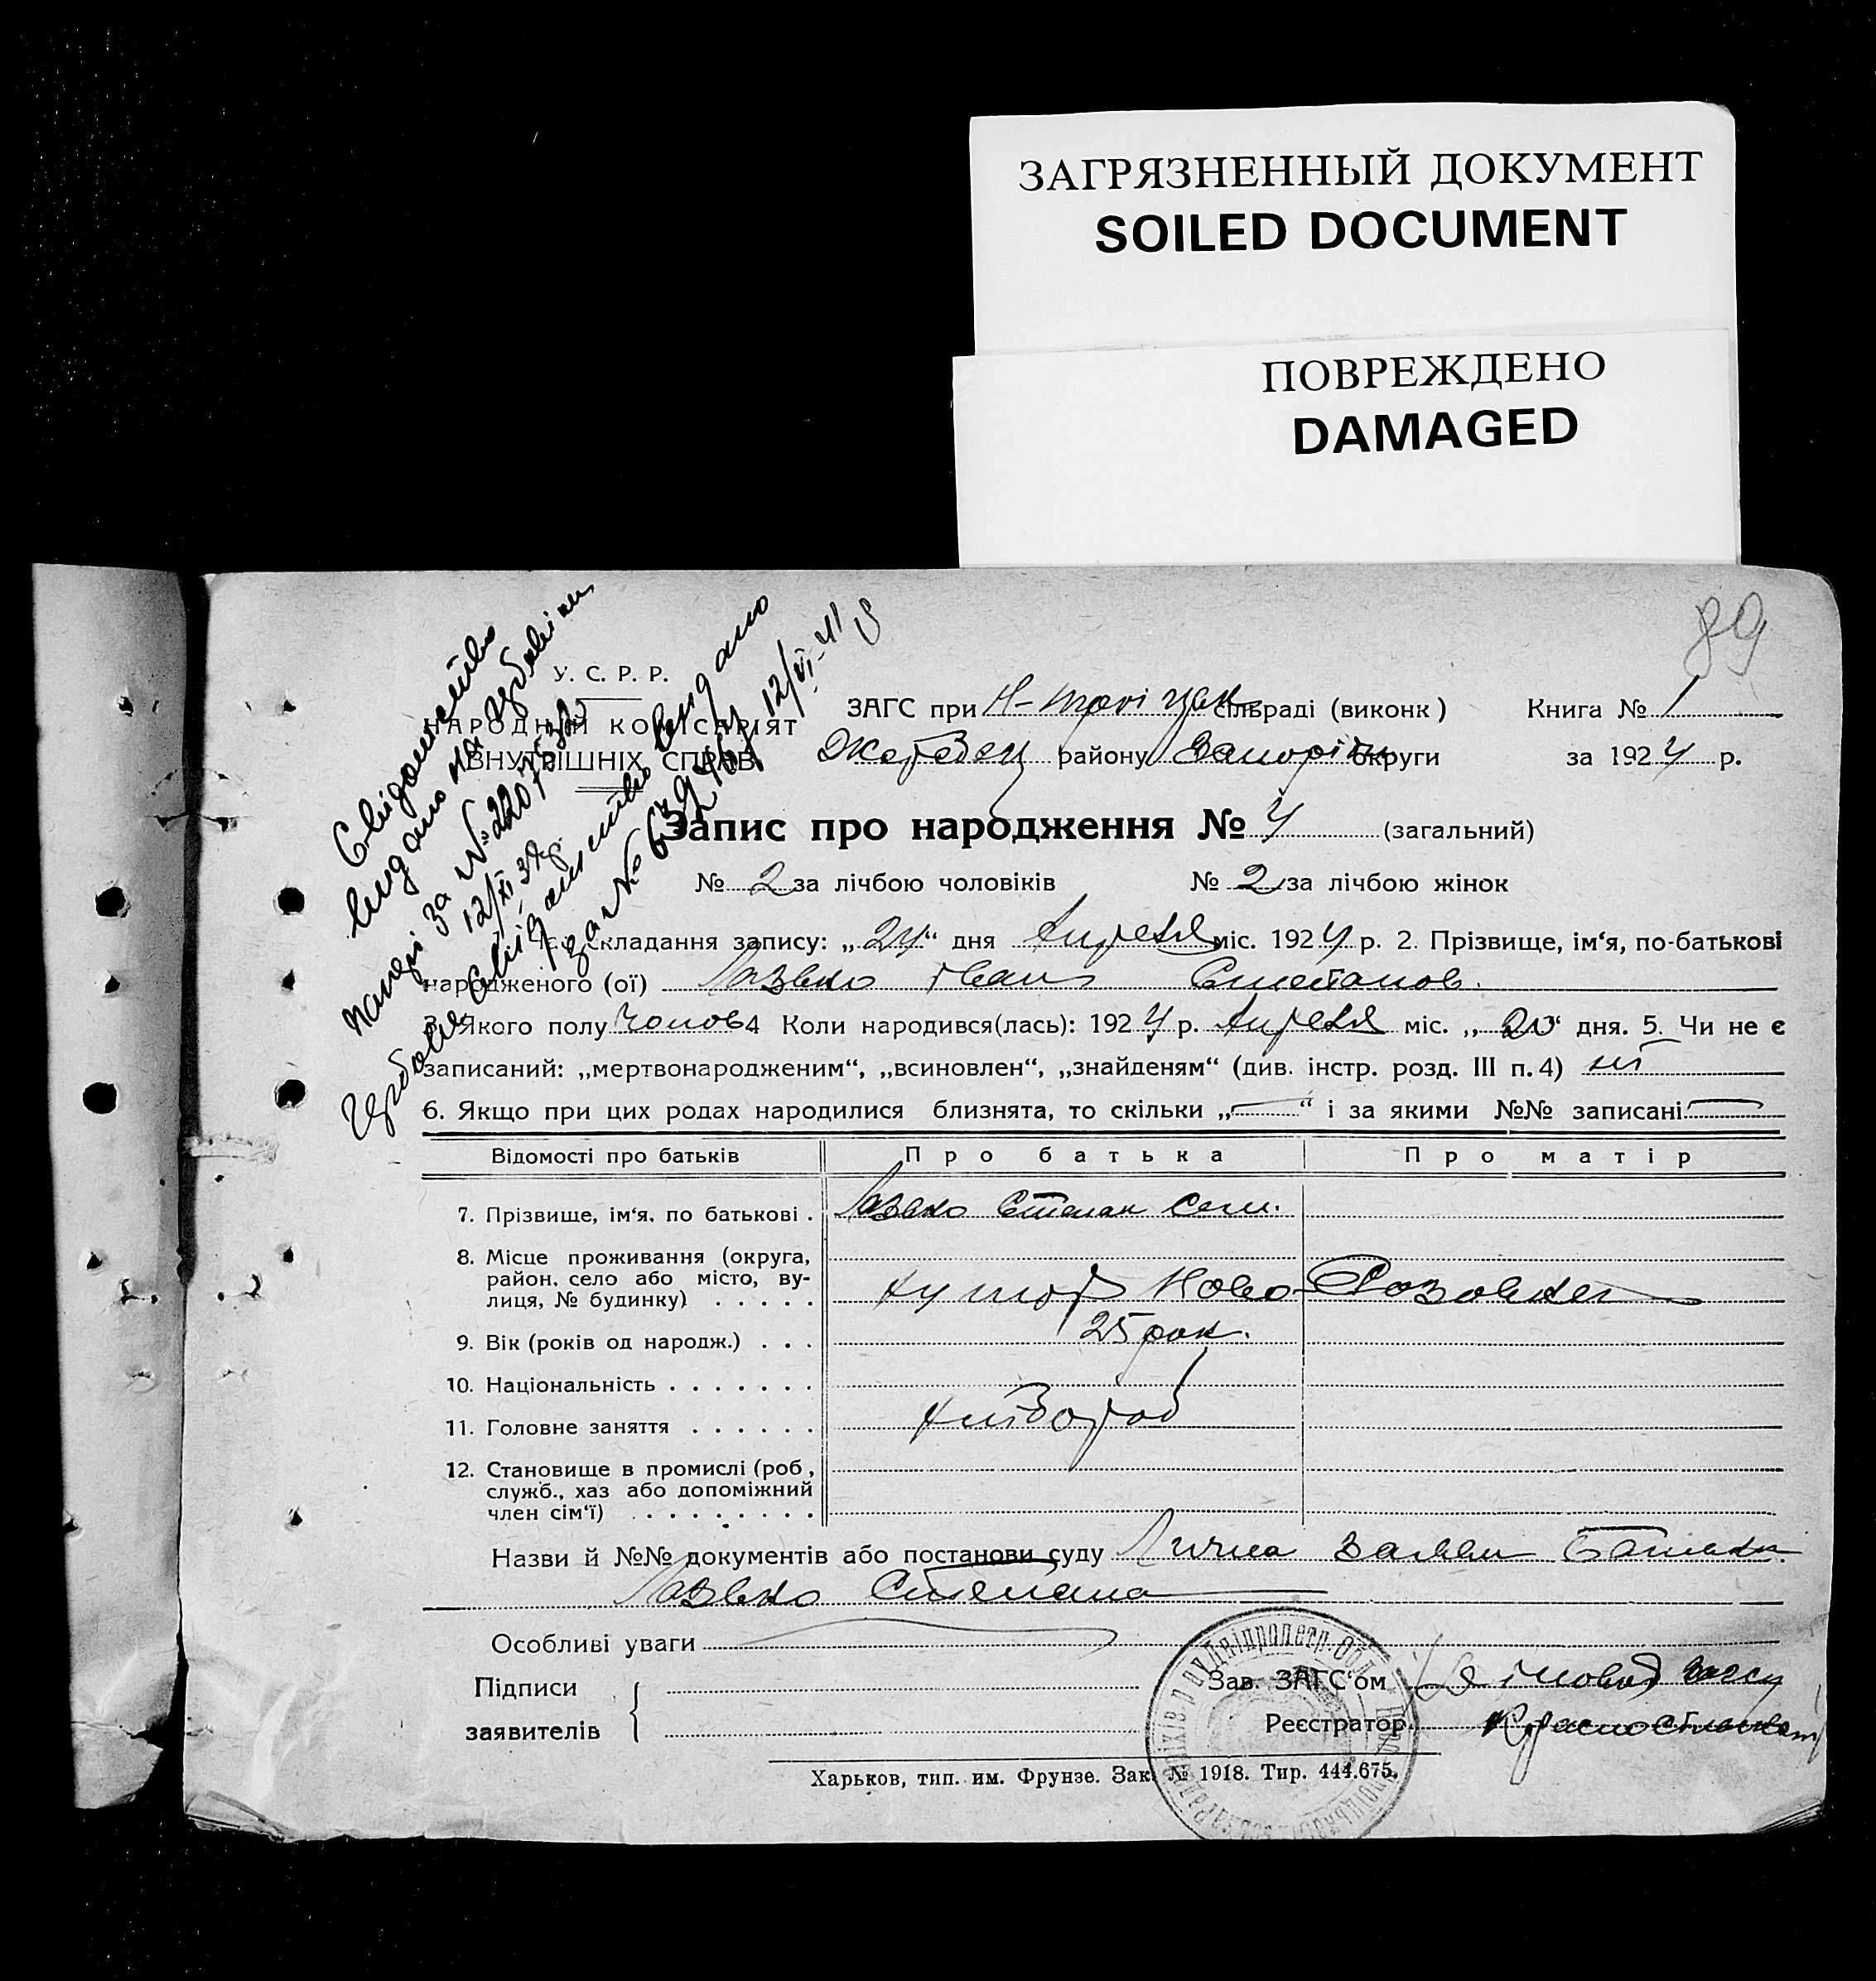 ЗАГРЯЗНЕННЫЙ ДОКУМЕНТ
SOILED DOCUMENT
ПОВРЕЖДЕНО
DAMAGED
89
Свідоцтво
видано на
за №
12/XI 37р.
Свідоцтво видано
за № 12/VI-41 р
У. С. Р. Р.
НАРОДНИЙ КОМІСАРІЯТ
ВНУТРІШНІХ СПРАВ
ЗАГС при Н-Троіцак сільраді (виконк) Книга № 1
Жереб'ец району Запоріж округи за 1924 р.
Запис про народження № 4 (загальний)
№ 2 за лічбою чоловіків № 2 за лічбою жінок
складання запису: „24“ дня Апреля міс. 1924 р. 2. Прізвище, ім'я, по-батькові
народженого (ої) Лазько Іван Степанов.
3. Якого полу чолов 4 Коли народився(лась): 1924 р. Апреля міс. „20“ дня. 5. Чи не є
записаний: „мертвонародженим“, „всиновлен“, „знайденям“ (див. інстр. розд. III п. 4) ні
6. Якщо при цих родах народилися близнята, то скільки „—“ і за якими №№ записані —
Відомості про батьків Про батька Про матір
7. Прізвище, ім'я, по батькові . Лазько Степан Сем.
8. Місце проживання (округа,
район, село або місто, ву-
лиця, № будинку) . . . . . хутор Ново-Розовка
9. Вік (років од народж.) . . . 25 рок.
10. Національність . . . . . . .
11. Головне заняття . . . . . . хлібороб
12. Становище в промислі (роб,
служб., хаз або допоміжний
член сім'ї) . . . . . . . . .
Назви й №№ документів або постанови суду Лична заяви батька
Лазько Степана
Особливі уваги
Підписи
заявителів
Зав. ЗАГС'ом
Реєстратор
Харьков, тип. им. Фрунзе. Зак. № 1918. Тир. 444.675.